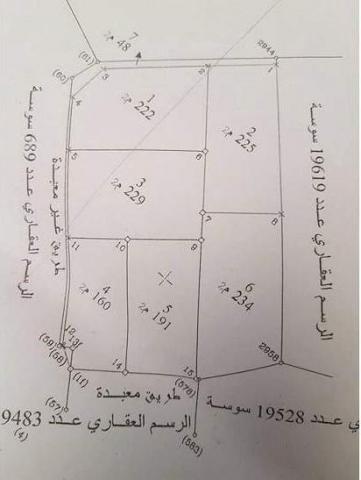 7
48 م2
(61)
2944
3
2
1
(60)
4
1
222 م2
2
225 م2
5
6
3
229 م2
7
8
11
10
9
4
160 م2
5
191 م2
6
234 م2
12
13
(59)
(58)
(11)
14
15
(578)
2958
(57)
(583)
الرسم العقاري عدد 689 سوسة
طريق غير معبدة
الرسم العقاري عدد 19619 سوسة
طريق معبدة
الرسم العقاري عدد 9483
(4)
ي عدد 19528 سوسة